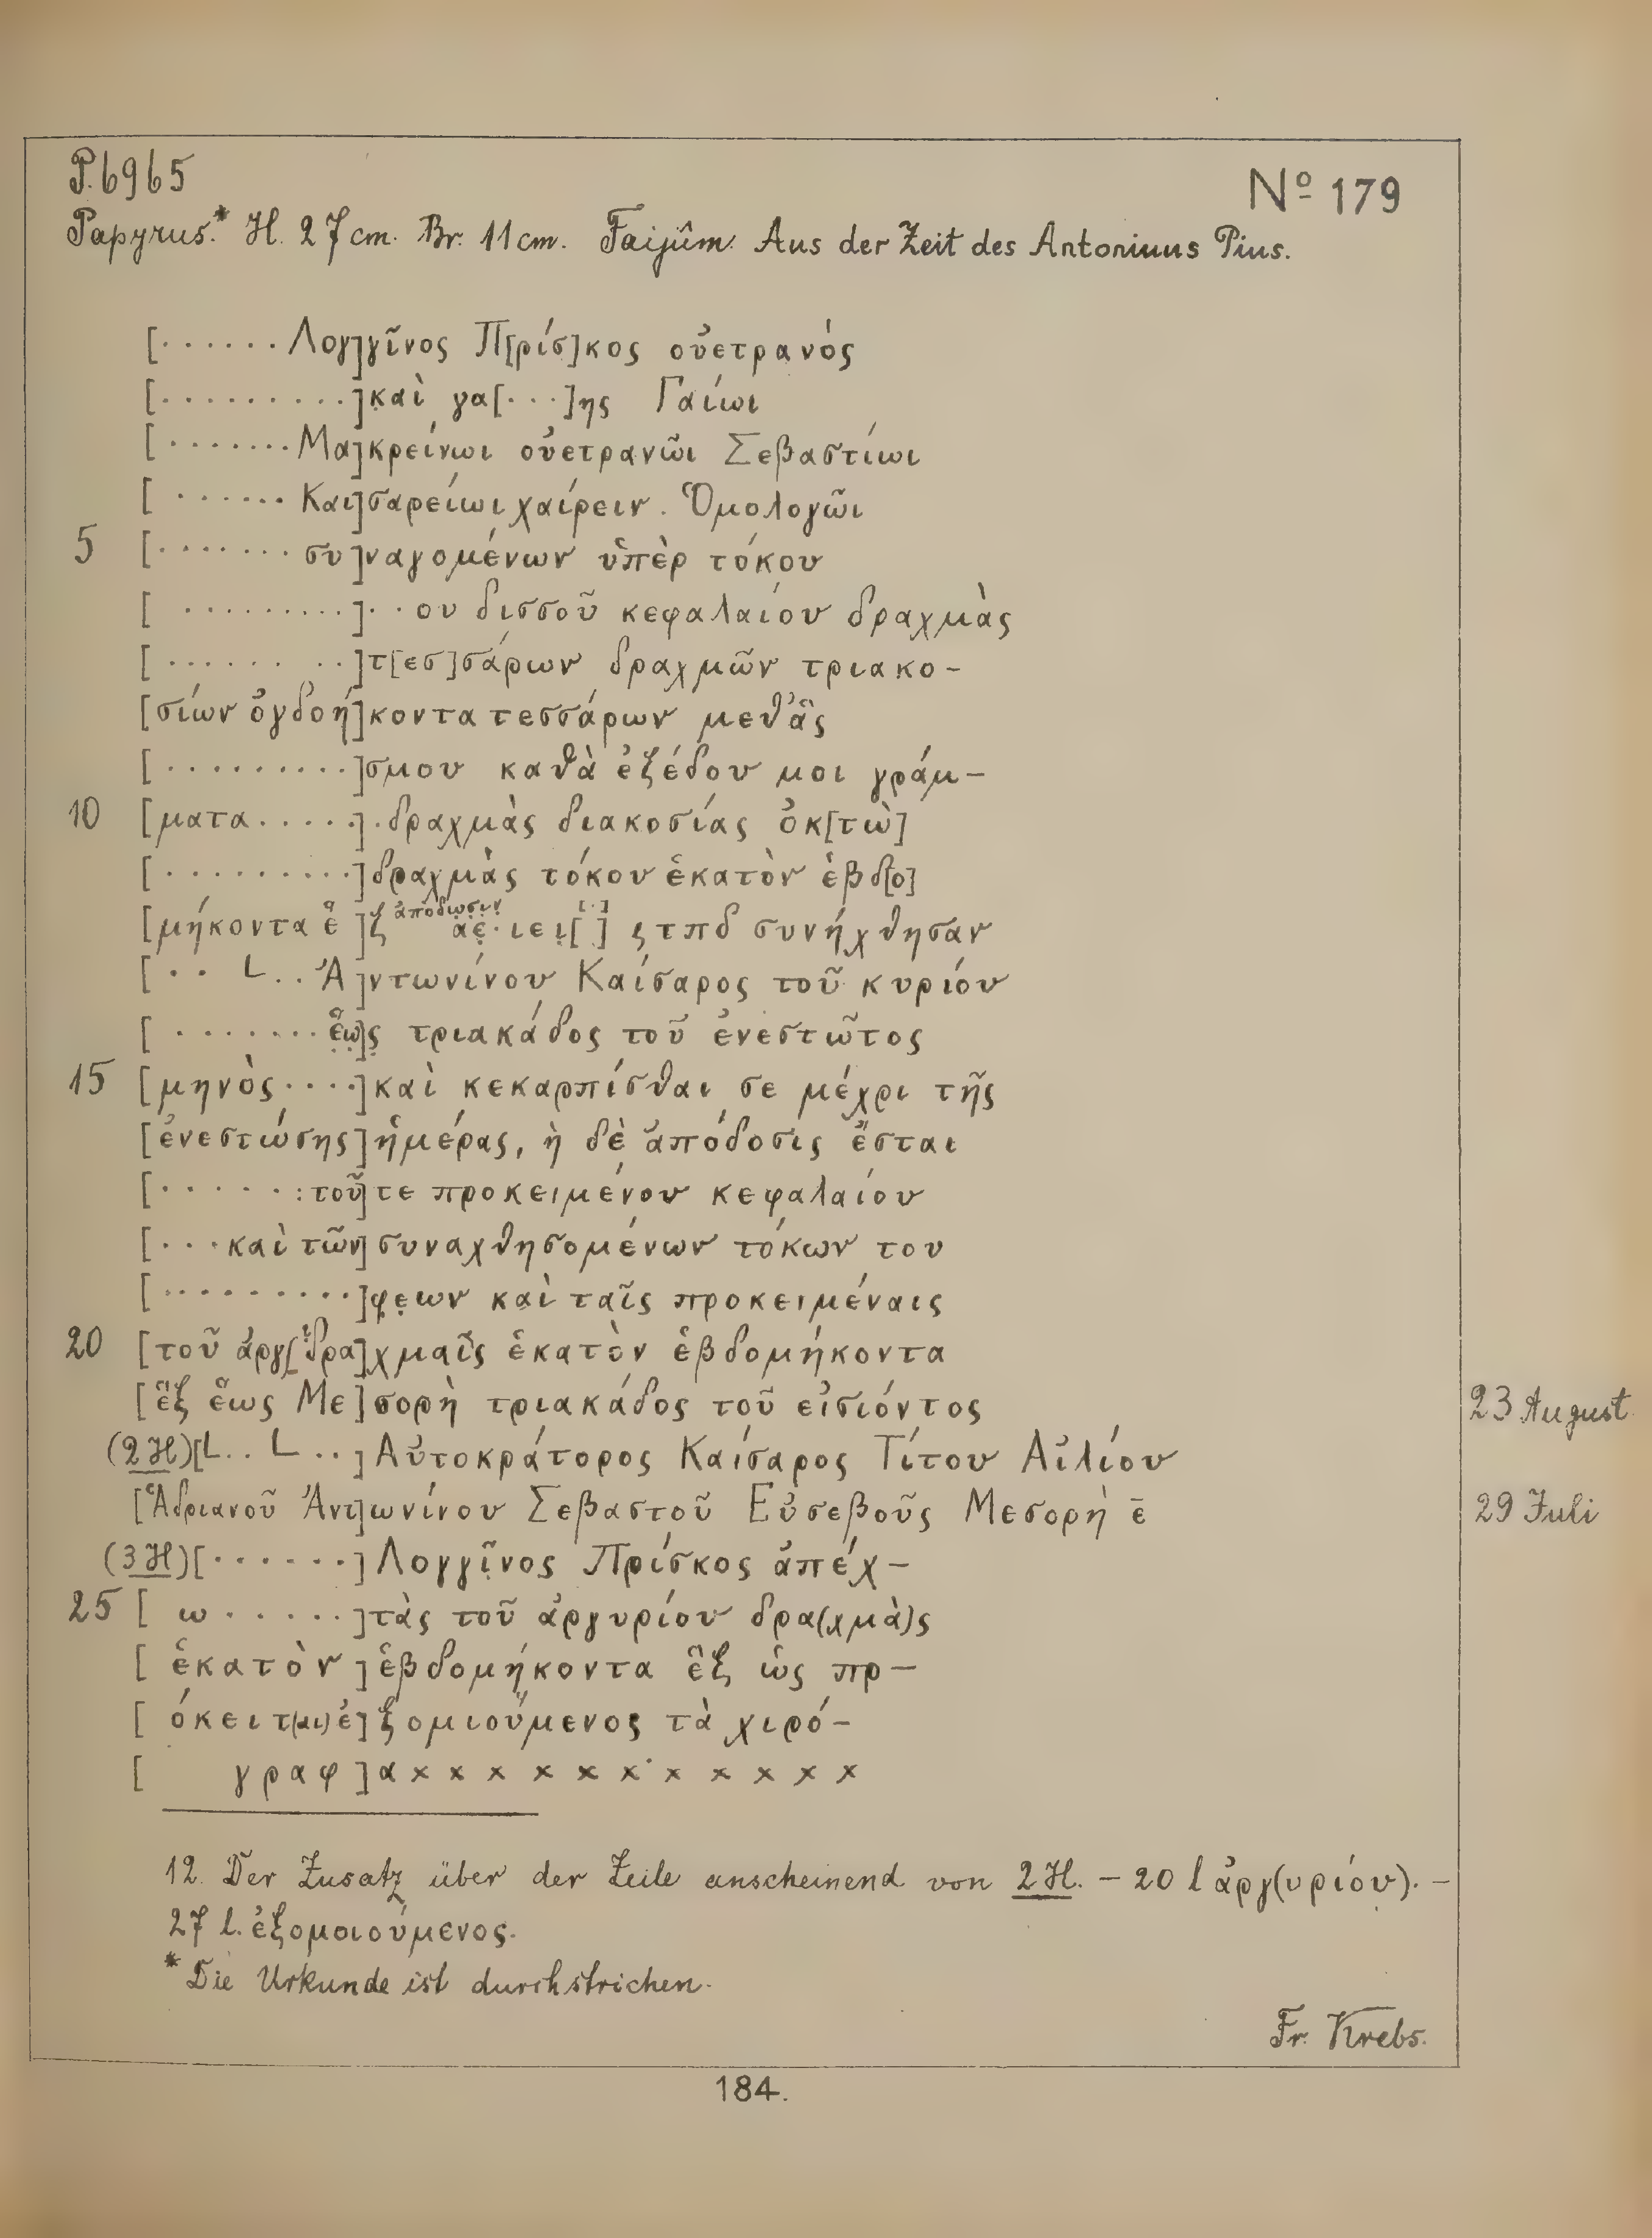 P. 6965
Nº 179
Papyrus.* H. 27 cm. Br. 11 cm. Faijûm. Aus der Zeit des Antoninus Pius.
[······ Λογ]γῖνος Π[ρίσ]κος οὐετρανὸς
[·········]κ̣αὶ γα[···]ης Γαίωι
[······· Μα]κρείνωι οὐετρανῶι Σεβαστίωι
[······ Και]σαρείωι χαίρειν. Ὁμολογῶι
5 [······· συ]ναγομένων ὑπὲρ τόκου
[·········]··ου δισσοῦ κεφαλαίου δραχμὰς
[······ ··]τ[εσ]σάρων δραχμῶν τριακο-
[σίων ὀγδοή]κοντα τεσσάρων μεθ' ἃς
[·········]σμου καθὰ ἐξέδου μοι γράμ-
10 [ματα·····]·δραχμὰς διακοσίας ὀκ[τὼ]
[·········]δραχμὰς τόκου ἑκατὸν ἑβδ[ο]
ἀπόδω̣σ̣ι̣ν̣ [·]
[μήκοντα ἓ]ξ αε̣·ιει̣[ ] ς τπδ συνήχθησαν
[·· L··Ἀ]ντωνίνου Καίσαρος τοῦ κυρίου
[······· ἕ̣ω̣]ς̣ τριακάδος τοῦ ἐνεστῶτος
15 [μηνὸς····]καὶ κεκαρπίσθαι σε μέχρι τῆς
[ἐνεστώσης] ἡμέρας, ἡ δὲ ἀπόδοσις ἔσται
[······:τοῦ] τε προκειμένου κεφαλαίου
[···καὶ τῶν] συναχθησομένων τόκων του
[·········]φε̣ων καὶ ταῖς προκειμέναις
20 [τοῦ ἀργ[ι̣ δρα]χμαῖς ἑκατὸν ἑβδομήκοντα
[ἓξ ἕως Με]σορὴ τριακάδος τοῦ εἰσιόντος
23 August
(2 H)[L·· L··] Αὐτοκράτορος Καίσαρος Τίτου Αἰλίου
[Ἁδριανοῦ Ἀντ]ωνίνου Σεβαστοῦ Εὐσεβοῦς Μεσορὴ ε̄
29 Juli
(3 H)[······] Λογγῖ̣νος Πρίσκος ἀπέχ-
25 [ω ·····]τὰς τοῦ ἀργυρίου δρα(χμὰ)ς
[ἑκατὸν] ἑβδομήκοντα ἓξ ὡς πρ-
[όκειτ(αι) ἐ]ξομιούμενος τὰ χιρό-
[γραφ]α x x x x x x x x x x x
12. Der Zusatz über der Zeile anscheinend von 2 H. – 20 l ἀργ(υρίου). –
27 l. ἐξομοιούμενος.
* Die Urkunde ist durchstrichen.
Fr. Krebs.
184.